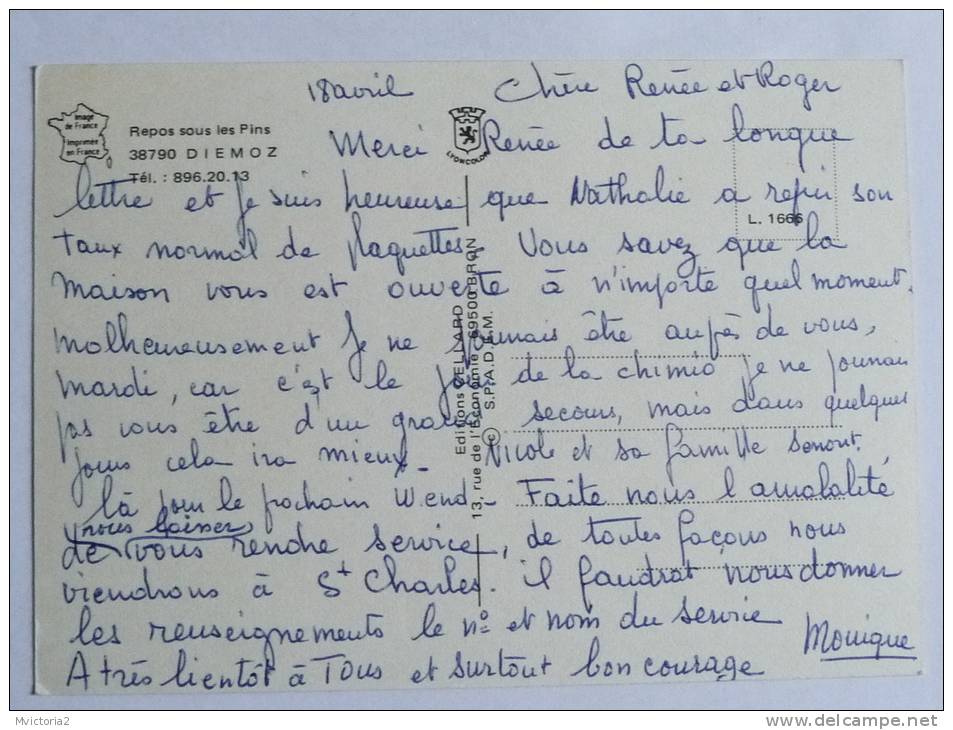 18 avril Chère Renée et Roger
Image
de France
Imprimée
en France
Repos sous les Pins
38790 DIEMOZ
Tél. : 896.20.13
LYONCOLOR
L. 1666
Merci Renée de ta longue
lettre et je suis heureuse que Nathalie a repri son
taux normal de plaquettes. Vous savez que la
maison vous est ouverte à n'importe quel moment.
Malheureusement je ne pourrais être auprès de vous,
mardi, car c'est le jour de la chimio je ne pourrais
pas vous être d'un grand secours, mais dans quelques
jours cela ira mieux. Nicole et sa famille seront
là pour le prochain Wend. Faite nous l'amabilité
nous laisser
de vous rendre service, de toutes façons nous
viendrons à St Charles. il faudrat nous donner
les renseignements le nº et nom du service
A très bientôt à Tous et surtout bon courage
Monique
Editions CELLARD
13, rue de l'Economie 69500 BRON
© S.P.A.D.E.M.
Mvictoria2
www.delcampe.net